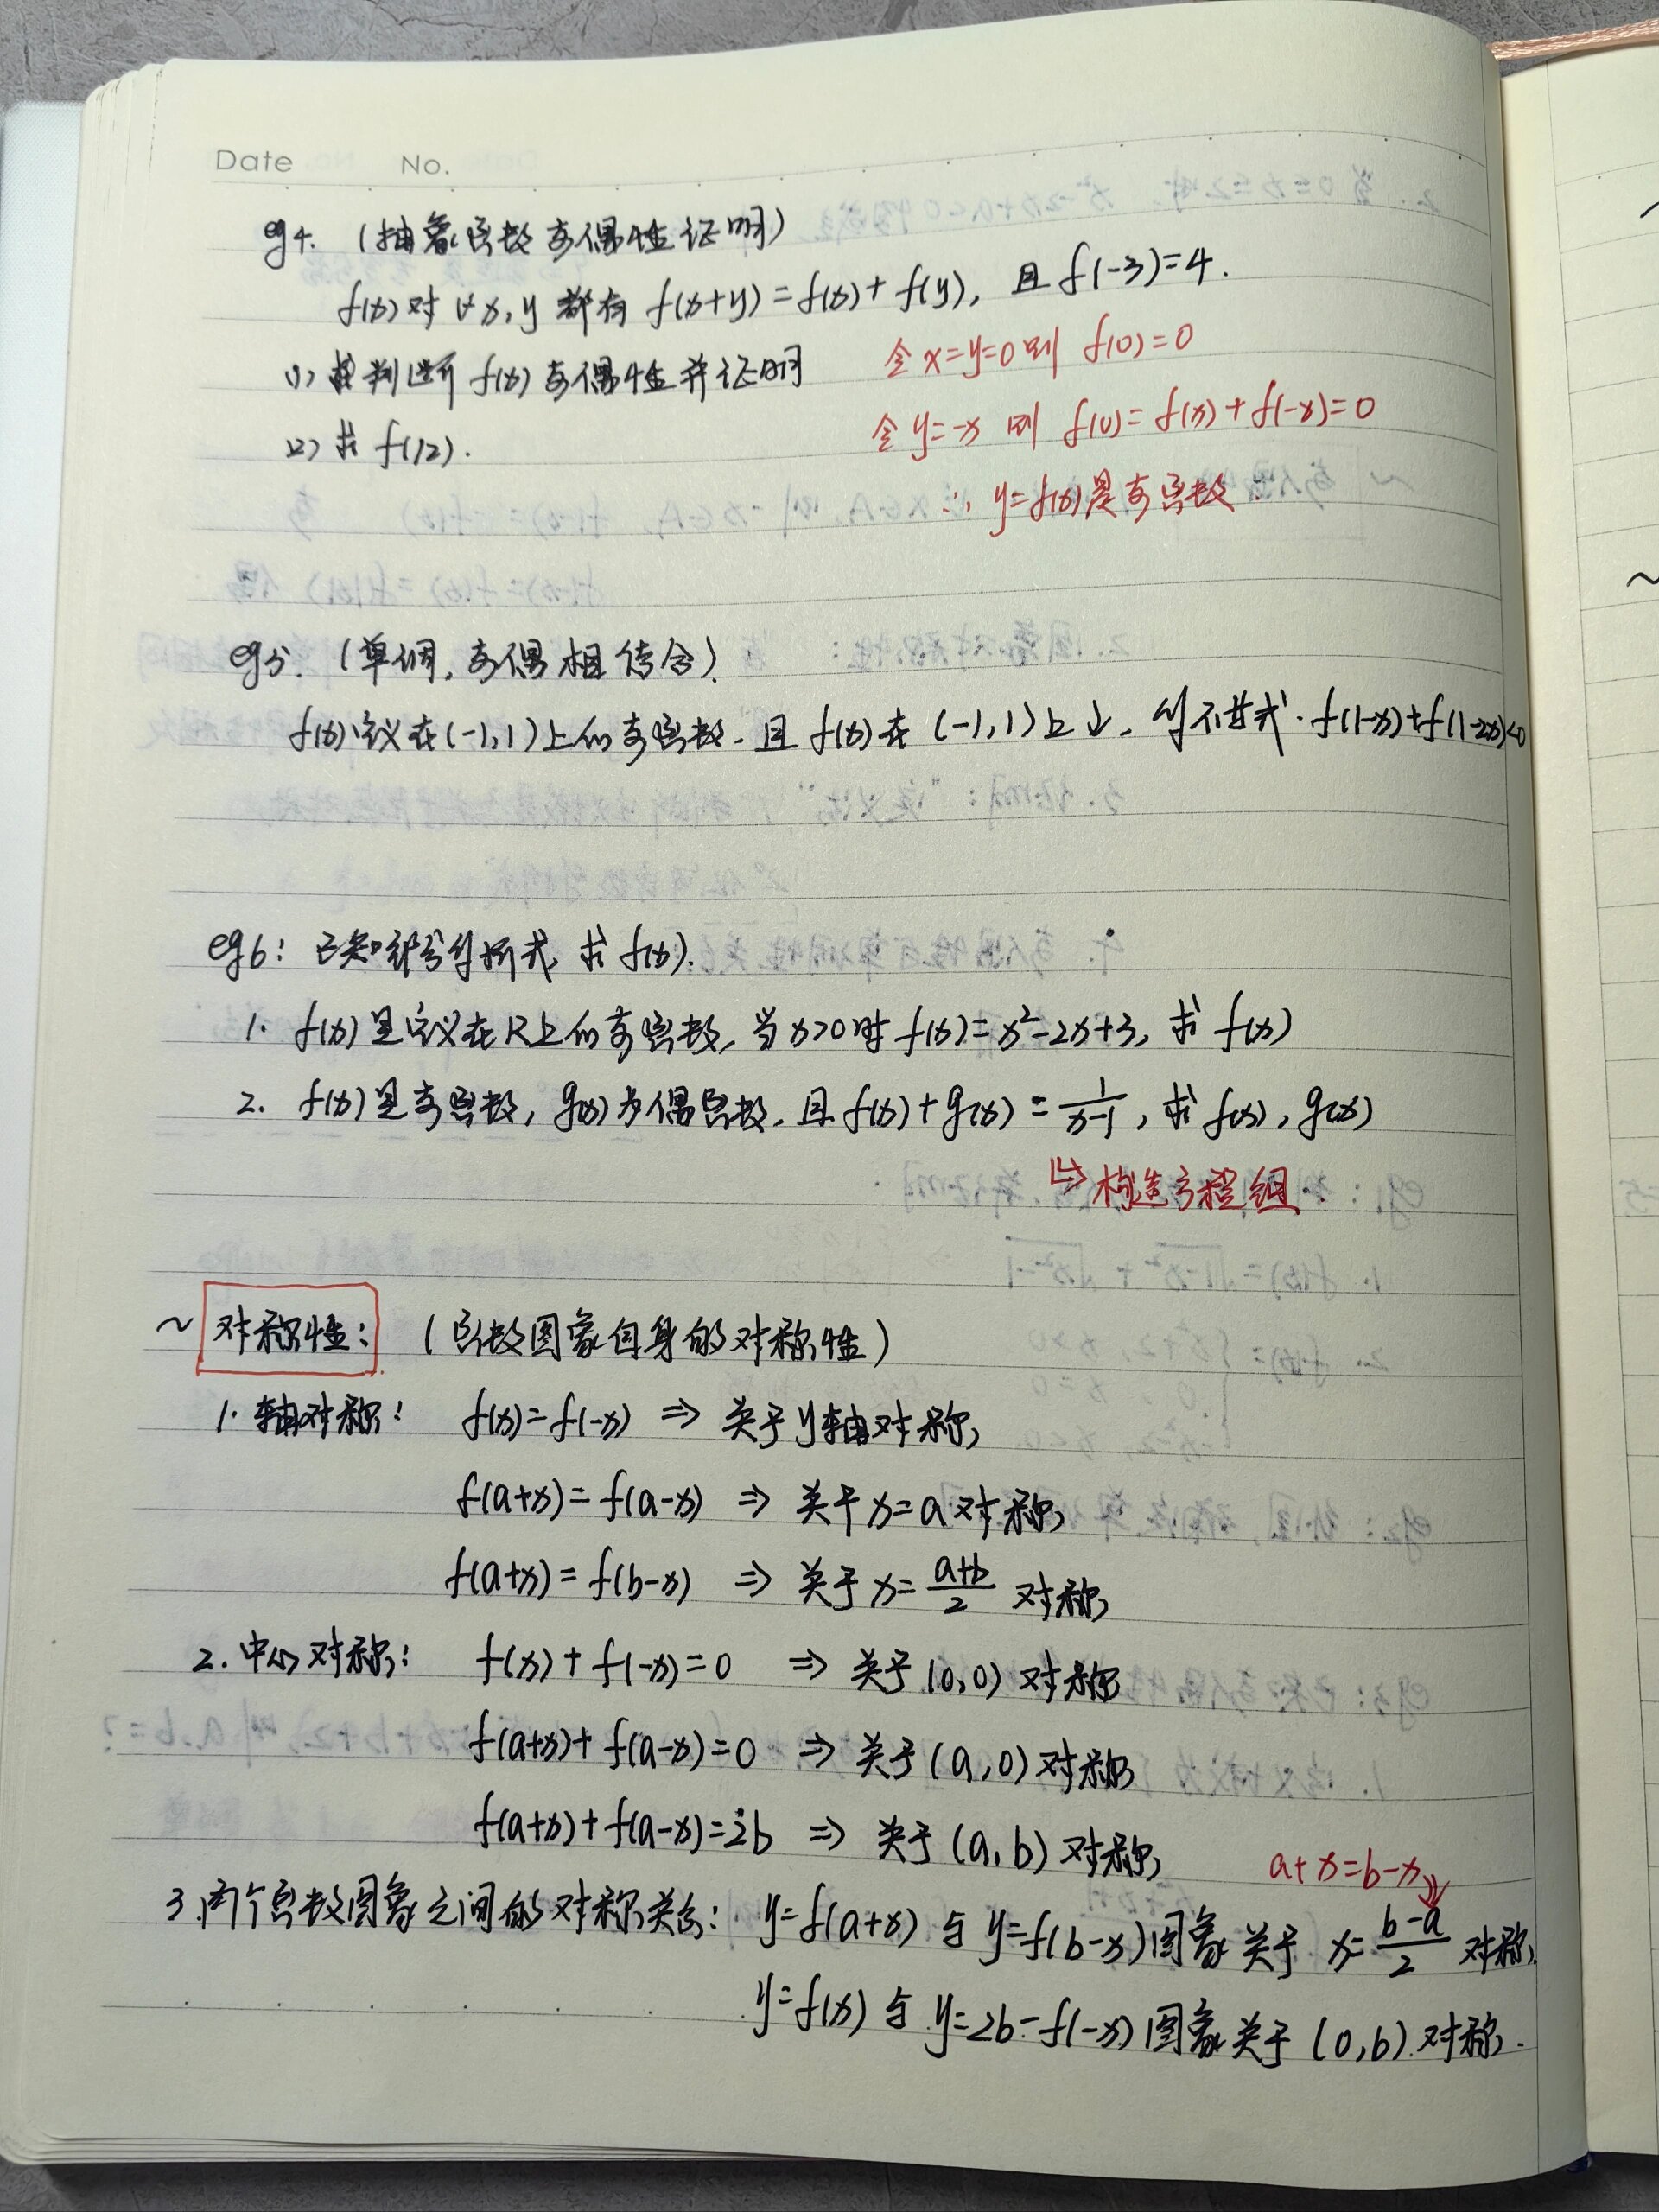 Date No.
eg4. (抽象函数奇偶性证明)
f(x)对∀x,y都有 f(x+y)=f(x)+f(y), 且f(-3)=4.
(1) 判断f(x)奇偶性并证明
令x=y=0则 f(0)=0
(2) 求f(12).
令y=-x 则 f(0)=f(x)+f(-x)=0
∴ y=f(x)是奇函数
eg5. (单调,奇偶相结合)
f(x)定义在(-1,1)上的奇函数, 且f(x)在(-1,1)上↓, 解不等式·f(1-x)+f(1-2x)<0
eg6: 已知部分解析式, 求f(x).
1. f(x)是定义在R上的奇函数, 当x>0时f(x)=x²-2x+3, 求f(x)
2. f(x)是奇函数, g(x)为偶函数, 且f(x)+g(x)=1/(x-1), 求f(x), g(x)
↳构造方程组
~ 对称性: (函数图象自身的对称性)
1. 轴对称: f(x)=f(-x) ⇒ 关于y轴对称
f(a+x)=f(a-x) ⇒ 关于x=a对称
f(a+x)=f(b-x) ⇒ 关于x=(a+b)/2 对称
2. 中心对称: f(x)+f(-x)=0 ⇒ 关于(0,0)对称
f(a+x)+f(a-x)=0 ⇒ 关于(a,0)对称
f(a+x)+f(a-x)=2b ⇒ 关于(a,b)对称
a+x=b-x
3. 两个函数图象之间的对称关系: y=f(a+x)与y=f(b-x)图象关于 x=(b-a)/2 对称
y=f(x)与y=2b-f(-x)图象关于(0,b)对称.